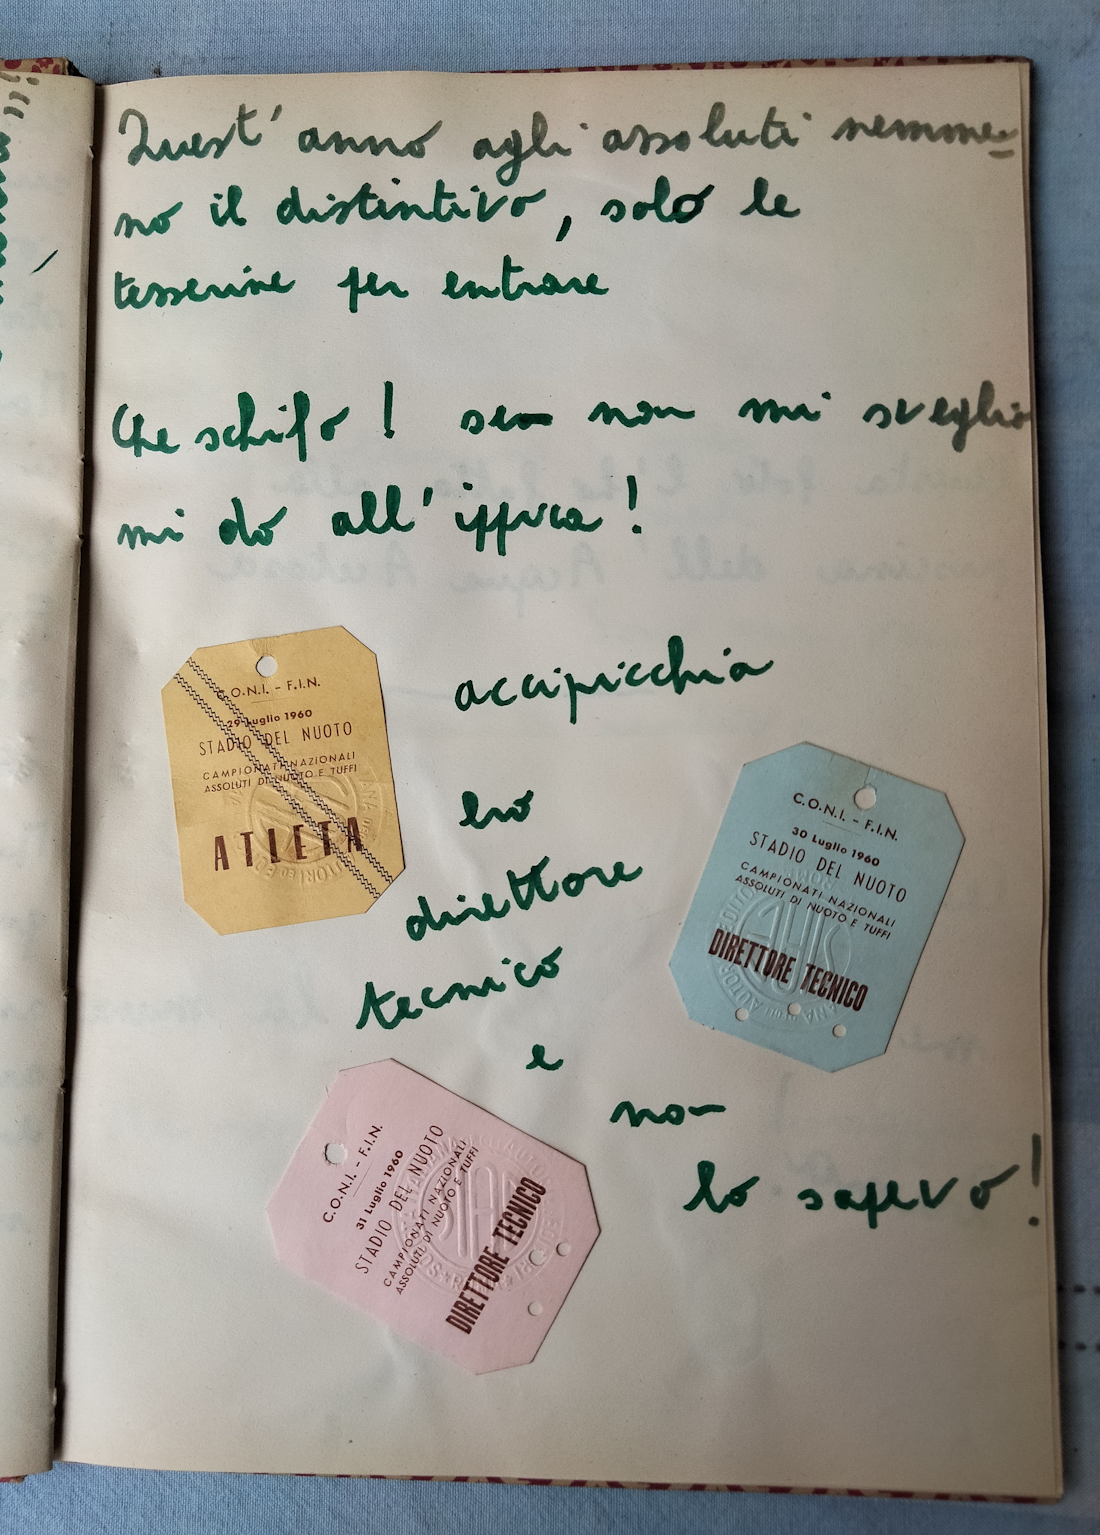 Quest' anno agli assoluti nemme-
no il distintivo, solo le
tesserine per entrare
Che schifo ! se non mi sveglio
mi do all' ippica !
accipicchia
C.O.N.I. - F.I.N.
29 Luglio 1960
STADIO DEL NUOTO
CAMPIONATI NAZIONALI
ASSOLUTI DI NUOTO E TUFFI
ATLETA
C.O.N.I. - F.I.N.
30 Luglio 1960
STADIO DEL NUOTO
CAMPIONATI NAZIONALI
ASSOLUTI DI NUOTO E TUFFI
DIRETTORE TECNICO
ero
direttore
tecnico
e
non
lo sapevo !
C.O.N.I. - F.I.N.
31 Luglio 1960
STADIO DEL NUOTO
CAMPIONATI NAZIONALI
ASSOLUTI DI NUOTO E TUFFI
DIRETTORE TECNICO